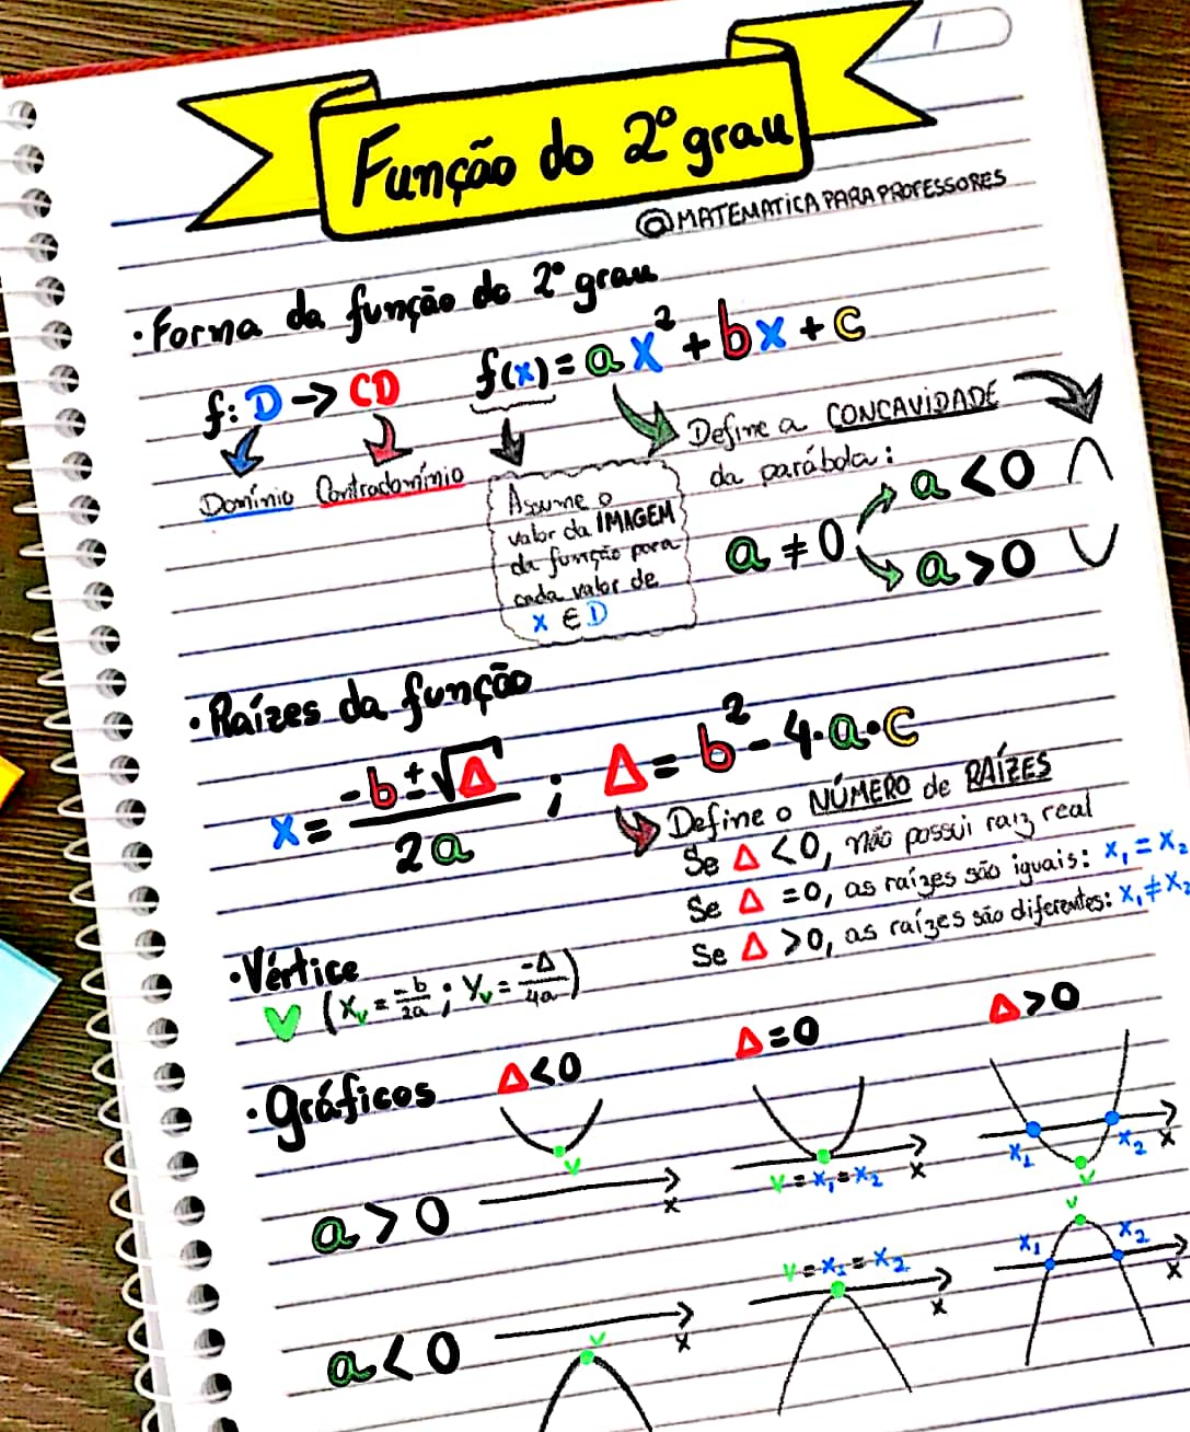 1
Função do 2º grau
@MATEMATICAPARAPROFESSORES
• Forma da função do 2º grau
f: D → CD
f(x) = ax² + bx + c
Domínio
Contradomínio
Assume o
valor da IMAGEM
da função para
cada valor de
x ∈ D
Define a CONCAVIDADE
da parábola:
a ≠ 0
a < 0
a > 0
• Raízes da função
x = -b ± √Δ / 2a ; Δ = b² - 4·a·c
Define o NÚMERO de RAÍZES
Se Δ < 0, não possui raiz real
Se Δ = 0, as raízes são iguais: x₁ = x₂
Se Δ > 0, as raízes são diferentes: x₁ ≠ x₂
• Vértice
V (Xᵥ = -b/2a ; Yᵥ = -Δ/4a)
• Gráficos
Δ<0
Δ=0
Δ>0
a > 0
V
x
V = x₁ = x₂
x
x₁
x₂
x
V
a < 0
V
x
V = x₁ = x₂
x
V
x₁
x₂
x